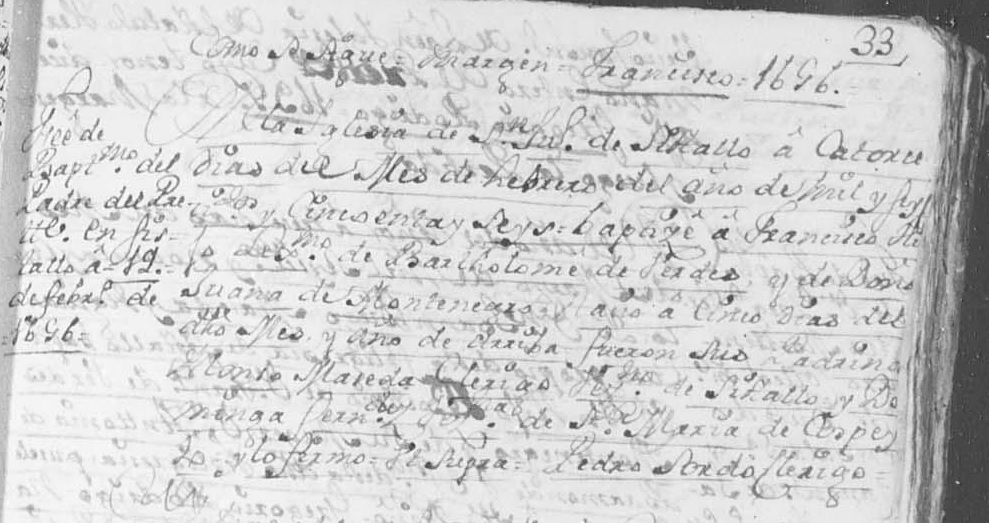 33
Como se sigue = Margen = Francisco = 1656. =
Feé de
Bapt.mo del
Padre del Pre-
te. en sis-
tallo â 12.
de febr.o de
1656 =
En la Yglesia de S.n Ju.o de Sistallo â Catorce
dias del Mes de hebrero del año de mil y seys
çi.os y Cinco enta y Seys = bapticê â Francisco Hi
jo lex.mo de Bartholome de Perdes, y de Dona
Juana de Montenegro nacio a Cinco dias del
dho Mes, y Año de arriba, fueron sus Padrinos
Alonso Mazeda Clerigo Vez.no de Sistallo, y Do
minga Fern.z Vez.a de S.ta Maria de Cospey
to = y lo firmo = Pedro Pardo Clerigo =